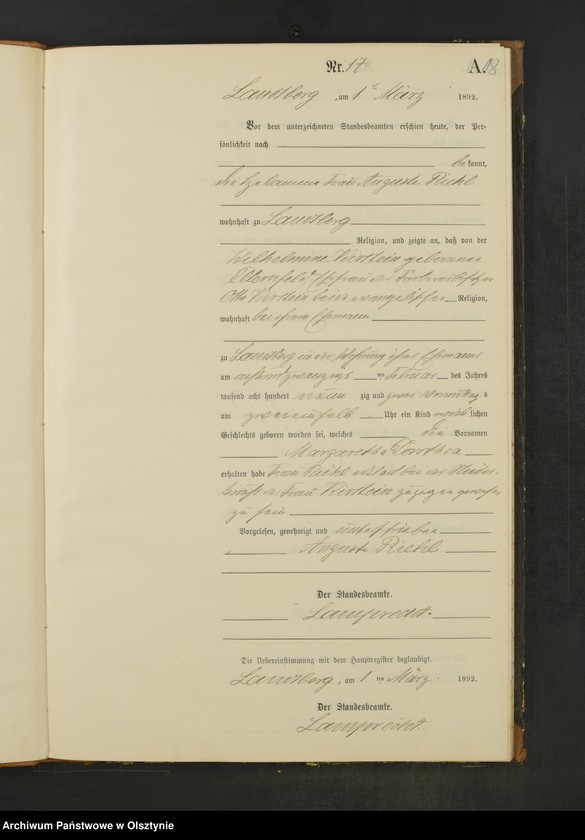 Nr. 17 A. 18
Landsberg, am 1ten März 1892.
Vor dem unterzeichneten Standesbeamten erschien heute, der Per-
sönlichkeit nach
bekannt,
die Hebamme Frau Auguste Riehl
wohnhaft zu Landsberg
Religion, und zeigte an, daß von der
Wilhelmine Kirstein geborenen
Ehefrau des
Otto Kirstein beide evangelischer Religion,
wohnhaft bei ihrem Ehemann
zu Landsberg in der Wohnung ihres Ehemanns
am achtundzwanzigsten Februar des Jahres
tausend acht hundert neunzig und zwei Vormittags
um zweieinhalb Uhr ein Kind weiblichen
Geschlechts geboren worden sei, welches die Vornamen
Margarethe Dorothea
erhalten habe. Frau Riehl erklärt bei der Nieder-
kunft der Frau Kirstein zugegen gewesen
zu sein
Vorgelesen, genehmigt und unterschrieben
Auguste Riehl
Der Standesbeamte.
Lamprecht.
Die Uebereinstimmung mit dem Hauptregister beglaubigt.
Landsberg, am 1ten März 1892.
Der Standesbeamte.
Lamprecht
Archiwum Państwowe w Olsztynie